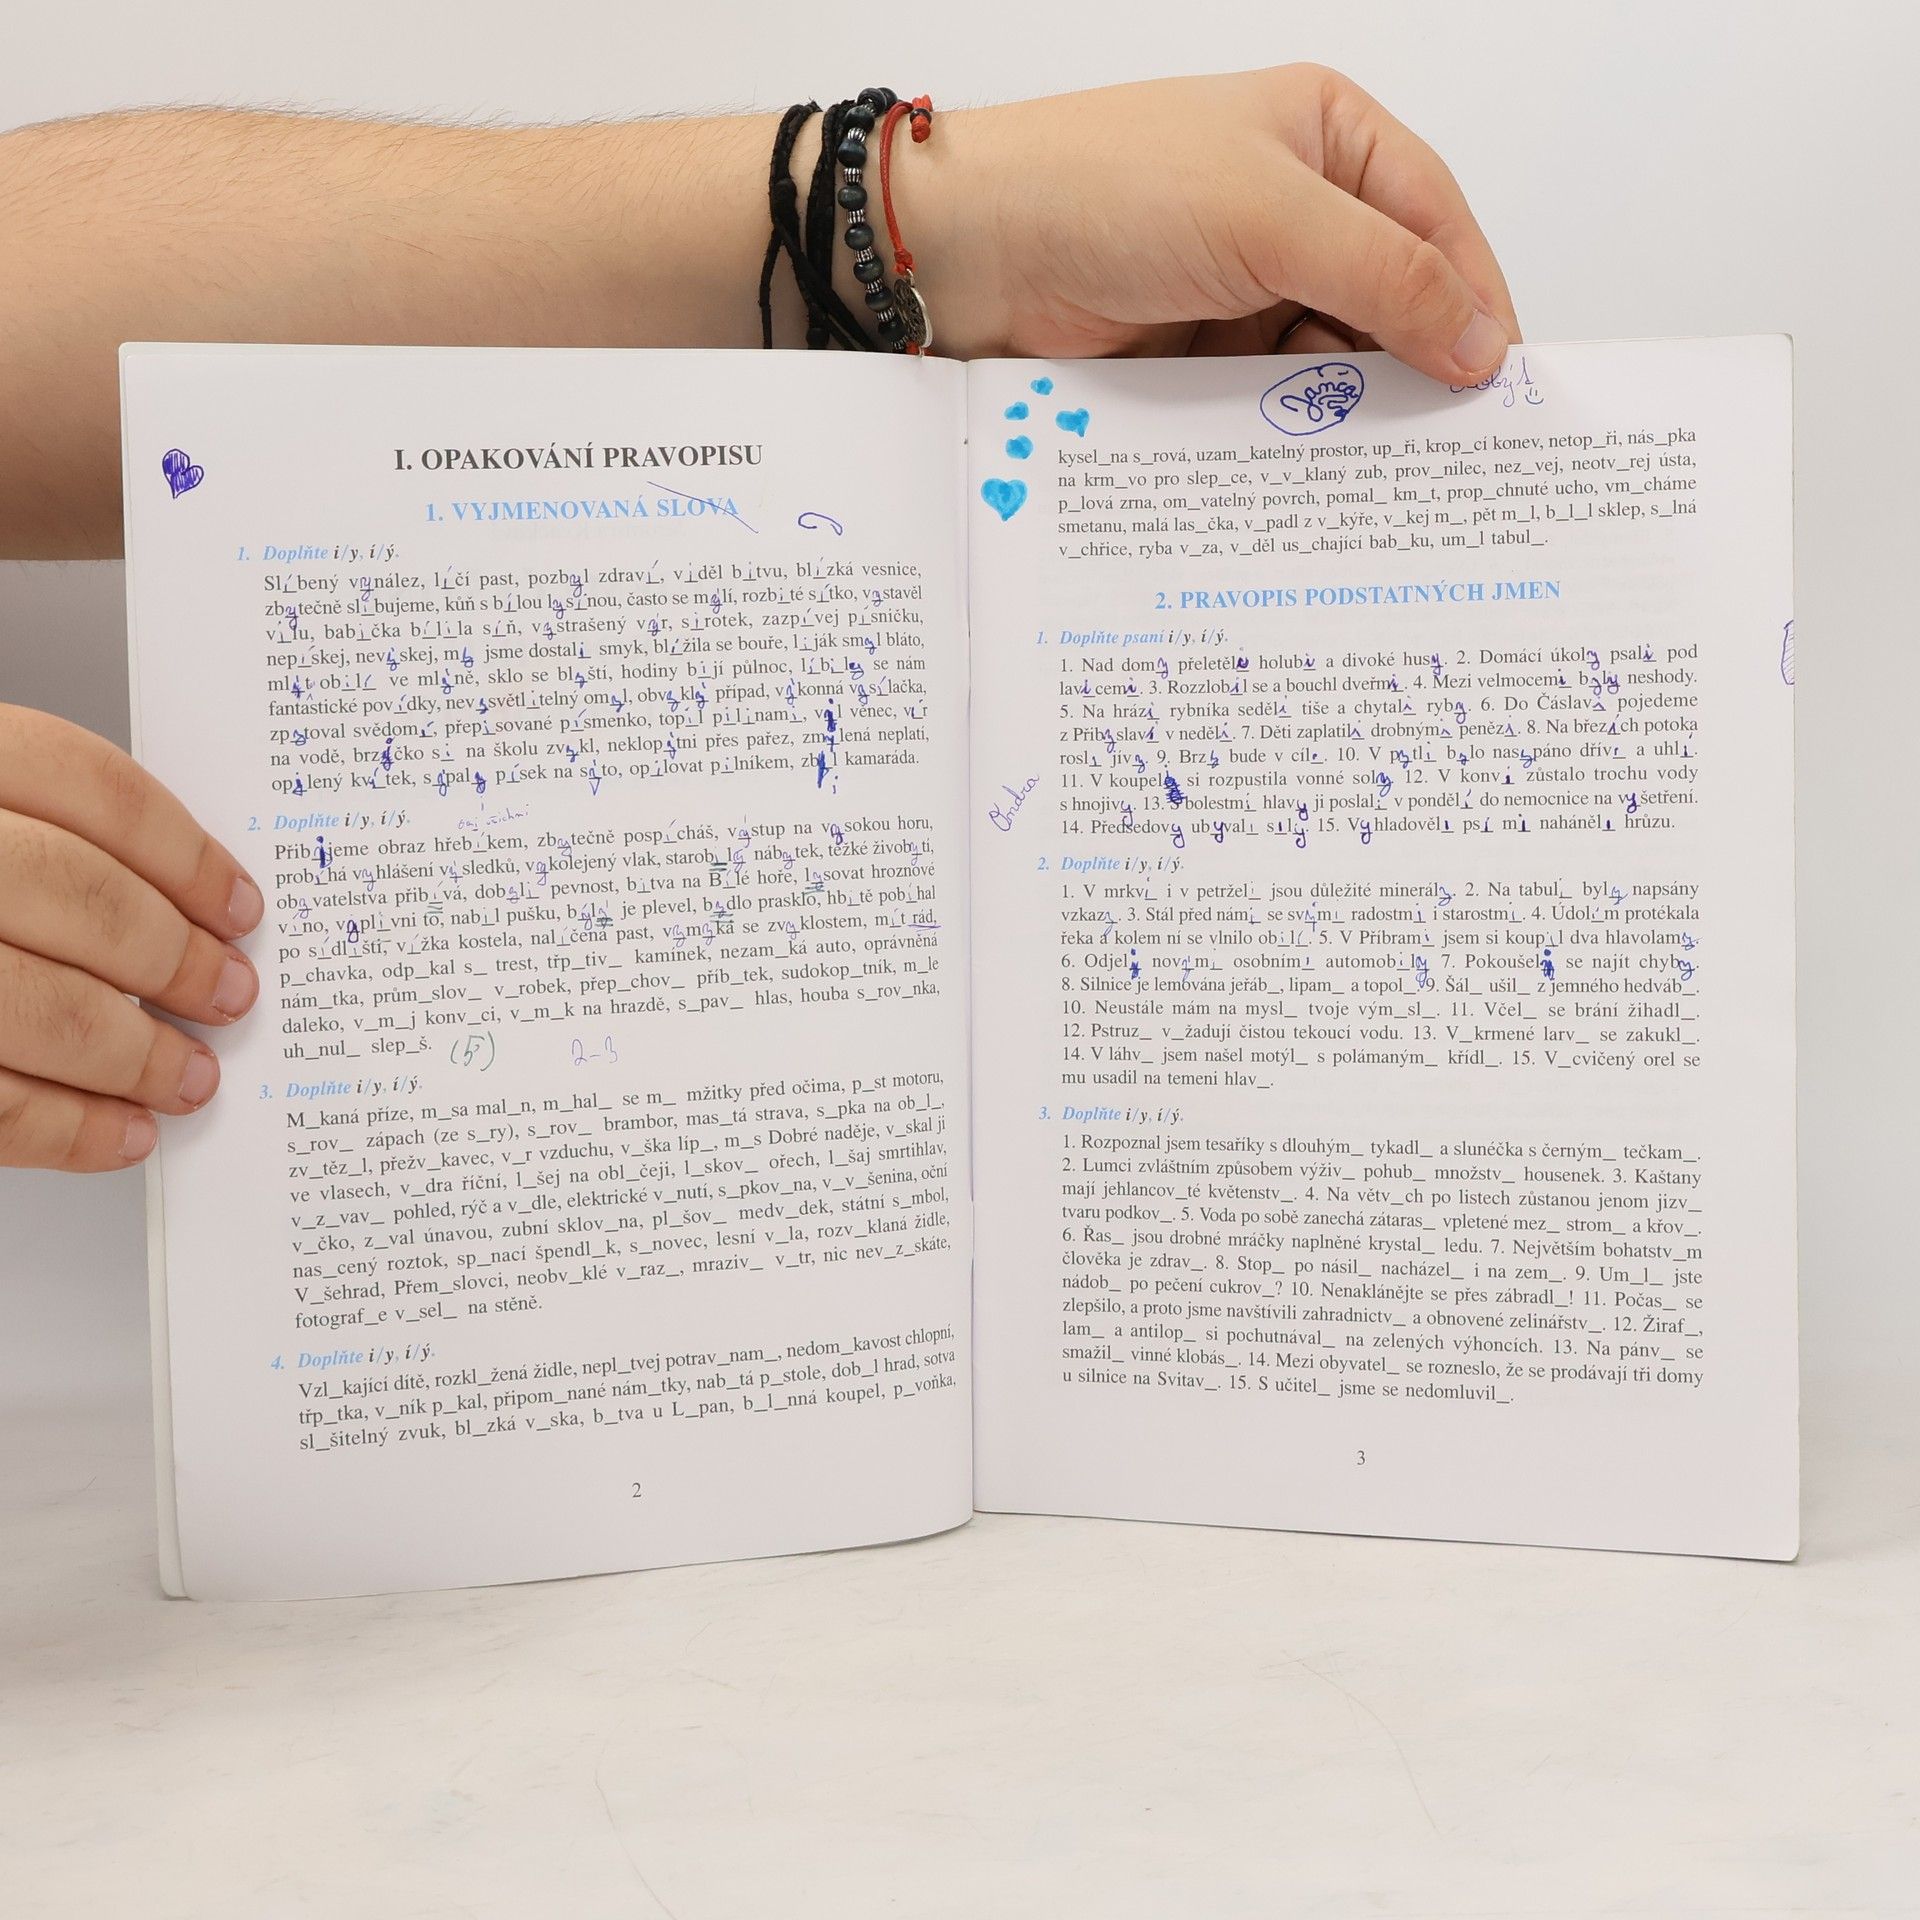 I. OPAKOVÁNÍ PRAVOPISU
1. VYJMENOVANÁ SLOVA
1. Doplňte i/y, í/ý.
Slíbený vynález, líčí past, pozbyl zdraví, viděl bitvu, blízká vesnice,
zbytečně slibujeme, kůň s bílou lysinou, často se mýlí, rozbité sítko, vystavěl
vilu, babička bílila síň, vystrašený výr, sirotek, zazpívej písničku,
nepískej, nevýskej, my jsme dostali smyk, blížila se bouře, liják smyl bláto,
mlít obilí ve mlýně, sklo se blyští, hodiny bijí půlnoc, líbily se nám
fantastické povídky, nevysvětlitelný omyl, obvyklý případ, výkonná vysílačka,
zpytoval svědomí, přepisované písmenko, topil pilinami, vil věnec, vír
na vodě, brzičko si na školu zvykl, neklopýtni přes pařez, zmýlená neplatí,
opylený kvítek, sypaly písek na síto, opilovat pilníkem, zbil kamaráda.
2. Doplňte i/y, í/ý.
Přibijeme obraz hřebíkem, zbytečně pospícháš, výstup na vysokou horu,
probíhá vyhlášení výsledků, vykolejený vlak, starobylý nábytek, těžké živobytí,
obyvatelstva přibývá, dobyli pevnost, bitva na Bílé hoře, lisovat hroznové
víno, vyplivni to, nabil pušku, býlí je plevel, bydlo prasklo, hbitě pobíhal
po sídlišti, vížka kostela, nalíčená past, vymyká se zvyklostem, mít rád,
p_chavka, odp_kal s_ trest, třp_tiv_ kamínek, nezam_ká auto, oprávněná
nám_tka, prům_slov_ v_robek, přep_chov_ příb_tek, sudokop_tník, m_le
daleko, v_m_j konv_ci, v_m_k na hrazdě, s_pav_ hlas, houba s_rov_nka,
uh_nul_ slep_š. (5) 2-3
3. Doplňte i/y, í/ý.
M_kaná příze, m_sa mal_n, m_hal_ se m_ mžitky před očima, p_st motoru,
s_rov_ zápach (ze s_ry), s_rov_ brambor, mas_tá strava, s_pka na ob_l_,
zv_těz_l, přežv_kavec, v_r vzduchu, v_ška líp_, m_s Dobré naděje, v_skal ji
ve vlasech, v_dra říční, l_šej na obl_čeji, l_skov_ ořech, l_šaj smrtihlav,
v_z_vav_ pohled, rýč a v_dle, elektrické v_nutí, s_pkov_na, v_v_šenina, oční
v_čko, z_val únavou, zubní sklov_na, pl_šov_ medv_dek, státní s_mbol,
nas_cený roztok, sp_nací špendl_k, s_novec, lesní v_la, rozv_klaná židle,
V_šehrad, Přem_slovci, neobv_klé v_raz_, mraziv_ v_tr, nic nev_z_skáte,
fotograf_e v_sel_ na stěně.
4. Doplňte i/y, í/ý.
Vzl_kající dítě, rozkl_žená židle, nepl_tvej potrav_nam_, nedom_kavost chlopní,
třp_tka, v_ník p_kal, připom_nané nám_tky, nab_tá p_stole, dob_l hrad, sotva
sl_šitelný zvuk, bl_zká v_ska, b_tva u L_pan, b_l_nná koupel, p_voňka,
2
Janča
kysel_na s_rová, uzam_katelný prostor, up_ři, krop_cí konev, netop_ři, nás_pka
na krm_vo pro slep_ce, v_v_klaný zub, prov_nilec, nez_vej, neotv_rej ústa,
p_lová zrna, om_vatelný povrch, pomal_ km_t, prop_chnuté ucho, vm_cháme
smetanu, malá las_čka, v_padl z v_kýře, v_kej m_, pět m_l, b_l_l sklep, s_lná
v_chřice, ryba v_za, v_děl us_chající bab_ku, um_l tabul_.
2. PRAVOPIS PODSTATNÝCH JMEN
1. Doplňte psaní i/y, í/ý.
1. Nad domy přeletěli holubi a divoké husy. 2. Domácí úkoly psali pod
lavicemi. 3. Rozzlobil se a bouchl dveřmi. 4. Mezi velmocemi byly neshody.
5. Na hrázi rybníka seděli tiše a chytali ryby. 6. Do Čáslavi pojedeme
z Přibyslavi v neděli. 7. Děti zaplatili drobnými penězi. 8. Na březích potoka
rostly jívy. 9. Brzy bude v cíli. 10. V pytli bylo nasypáno dříví a uhlí.
11. V koupeli si rozpustila vonné soly 12. V konvi zůstalo trochu vody
s hnojivy. 13. S bolestmi hlavy ji poslali v pondělí do nemocnice na vyšetření.
14. Předsedovy ubývali síly. 15. Vyhladovělí psi mi naháněli hrůzu.
Ondra
2. Doplňte i/y, í/ý.
1. V mrkvi i v petrželi jsou důležité minerály. 2. Na tabuli byly napsány
vzkazy. 3. Stál před námi se svými radostmi i starostmi. 4. Údolím protékala
řeka a kolem ní se vlnilo obilí. 5. V Příbrami jsem si koupil dva hlavolamy.
6. Odjeli novými osobními automobily 7. Pokoušeli se najít chyby.
8. Silnice je lemována jeřáb_, lipam_ a topol_. 9. Šál_ ušil_ z jemného hedváb_.
10. Neustále mám na mysl_ tvoje vým_sl_. 11. Včel_ se brání žihadl_.
12. Pstruz_ v_žadují čistou tekoucí vodu. 13. V_krmené larv_ se zakukl_.
14. V láhv_ jsem našel motýl_ s polámaným_ křídl_. 15. V_cvičený orel se
mu usadil na temeni hlav_.
3. Doplňte i/y, í/ý.
1. Rozpoznal jsem tesaříky s dlouhým_ tykadl_ a slunéčka s černým_ tečkam_.
2. Lumci zvláštním způsobem výživ_ pohub_ množstv_ housenek. 3. Kaštany
mají jehlancov_té květenstv_. 4. Na větv_ch po listech zůstanou jenom jizv_
tvaru podkov_. 5. Voda po sobě zanechá zátaras_ vpletené mez_ strom_ a křov_.
6. Řas_ jsou drobné mráčky naplněné krystal_ ledu. 7. Největším bohatstv_m
člověka je zdrav_. 8. Stop_ po násil_ nacházel_ i na zem_. 9. Um_l_ jste
nádob_ po pečení cukrov_? 10. Nenaklánějte se přes zábradl_! 11. Počas_ se
zlepšilo, a proto jsme navštívili zahradnictv_ a obnovené zelinářstv_. 12. Žiraf_,
lam_ a antilop_ si pochutnával_ na zelených výhoncích. 13. Na pánv_ se
smažil_ vinné klobás_. 14. Mezi obyvatel_ se rozneslo, že se prodávají tři domy
u silnice na Svitav_. 15. S učitel_ jsme se nedomluvil_.
3